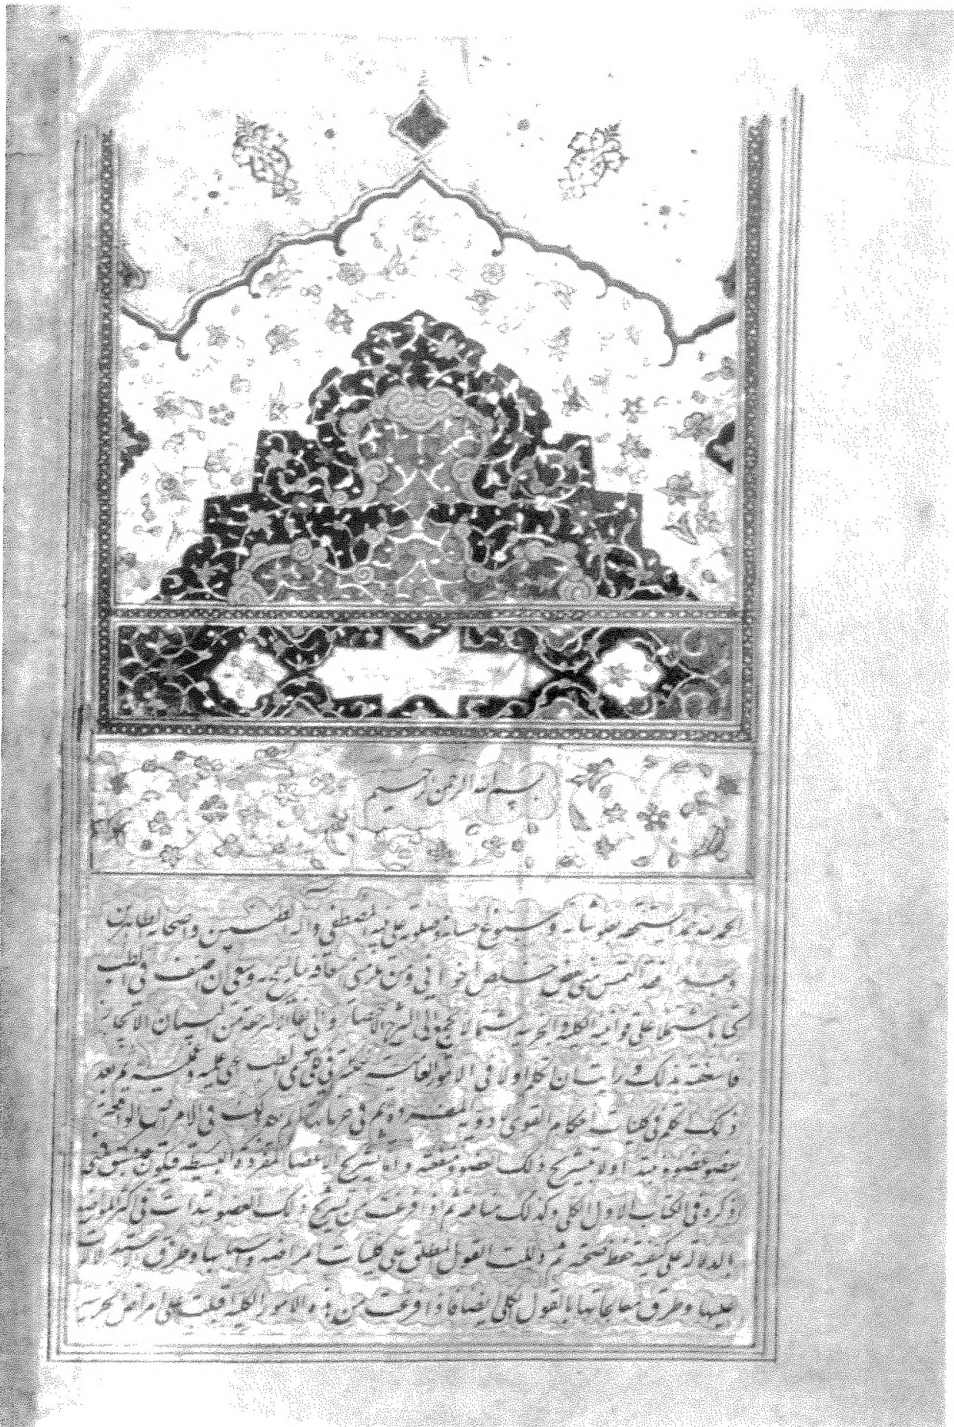 بسم الله الرحمن الرحيم
الحمد لله حمدا يستحقه بعلو شانه وسبوغ احسانه وصلوته على نبيه المصطفى وآله الطيبين واصحابه الطاهرين
وبعد فقد التمس منى بعض خلص اخوانى ومن يلزمنى اسعافه بما يسمح به وسعى ان اصنف فى الطب
كتابا مشتملا على قوانينه الكلية والجزئية اشتمالا يجمع الى الشرح الاختصار والى ايفاء الاكثر حقه من البيان الايجاز
فاسعفته بذلك ورايت ان اتكلم اولا فى الامور العامية فى كلى قسمى الطب اعنى علميه وعمليه ثم بعد
ذلك اتكلم فى كليات احكام قوى الادوية المفردة ثم فى جزئياتها ثم بعد ذلك فى الامراض الواقعة
بعضو عضو فنبتدئ اولا بتشريح ذلك العضو ومنفعته واما تشريح الاعضا المفردة البسيطة فيكون قد سبق منى
ذكره فى الكتاب الاول الكلى وكذلك منافعه ثم اذا فرغت من تشريح ذلك العضو ابتدات فى اكثر المواضع
بالدلالة على كيفية حفظ صحته ثم دللت القول المطلق على كليات امراضه واسبابها وطرق الاستدلالات
عليها وطرق معالجاتها بالقول الكلى ايضا فاذا فرغت من هذه الامور الكلية اقبلت على امراض الجزئية